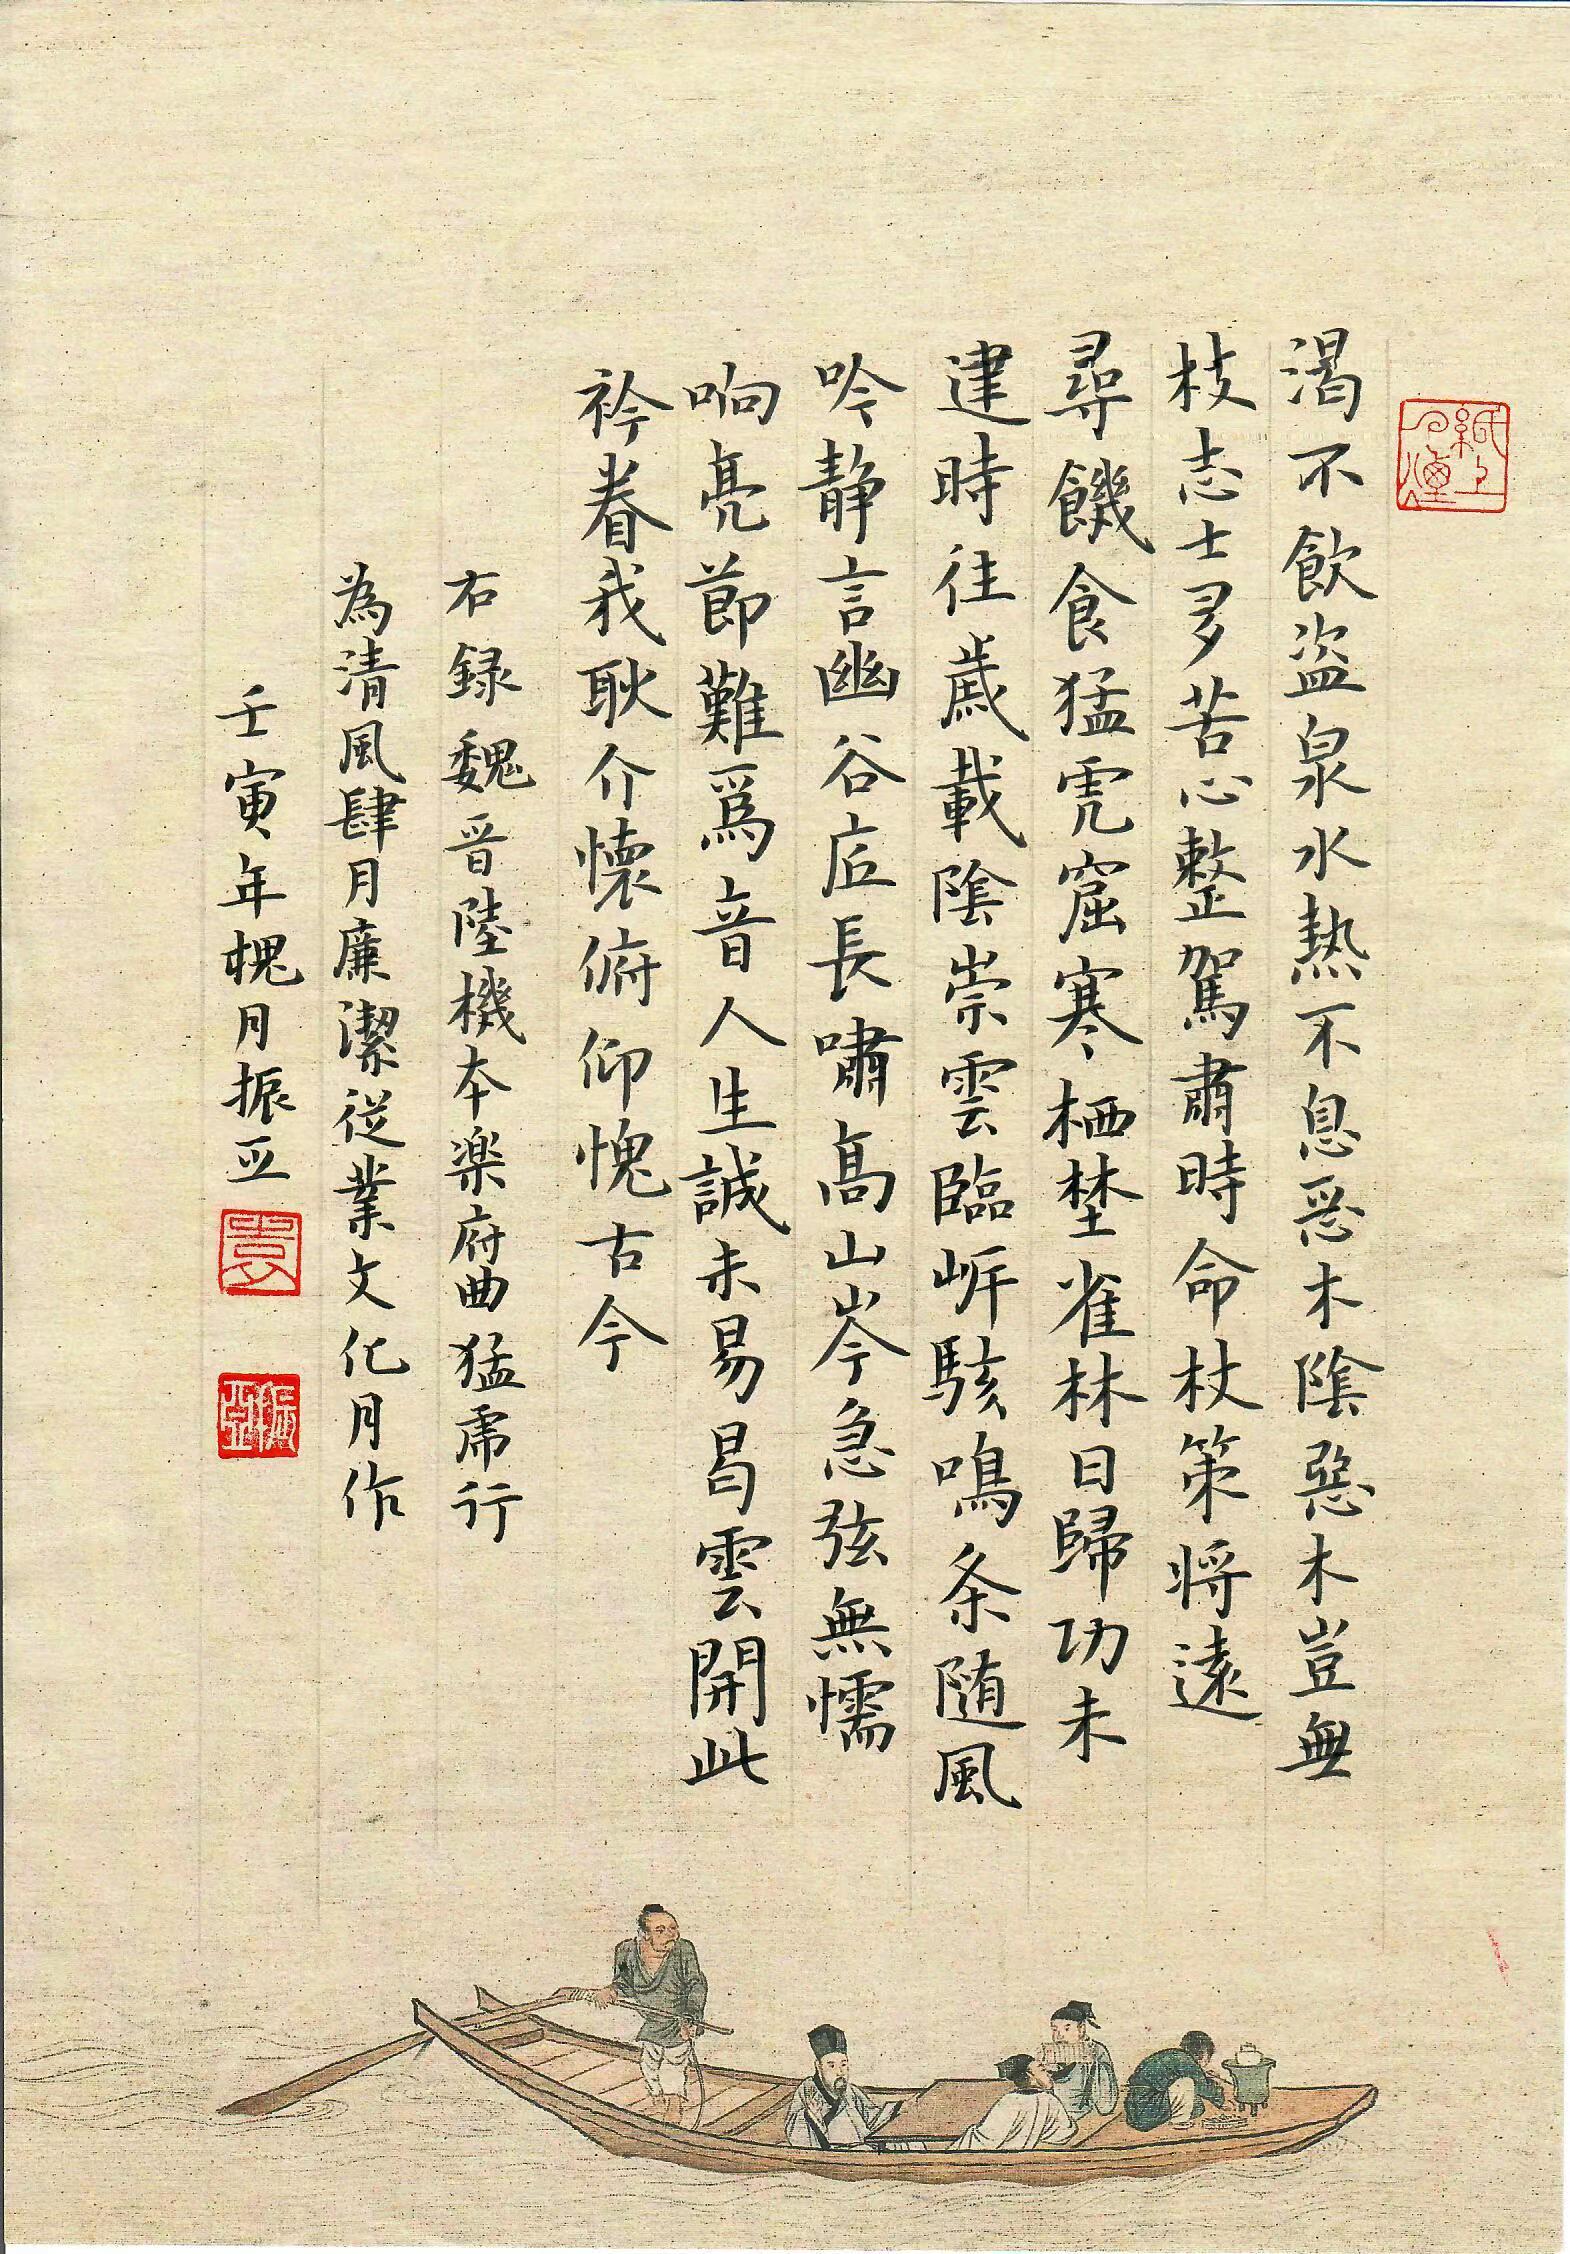 渴不飲盗泉水熱不息恶木陰惡木豈無
枝志士多苦心整駕肅時命杖策将遠
尋饑食猛虎窟寒栖埜雀林日歸功未
建時往歲載陰崇雲臨岸駭鳴条随風
吟静言幽谷底長嘯高山岑急弦無懦
响亮節難爲音人生誠未易曷雲開此
衿眷我耿介懷俯仰愧古今
右録魏晋陸機本楽府曲猛虎行
為清風肆月廉潔從業文化月作
壬寅年槐月振亚
袁
振亞